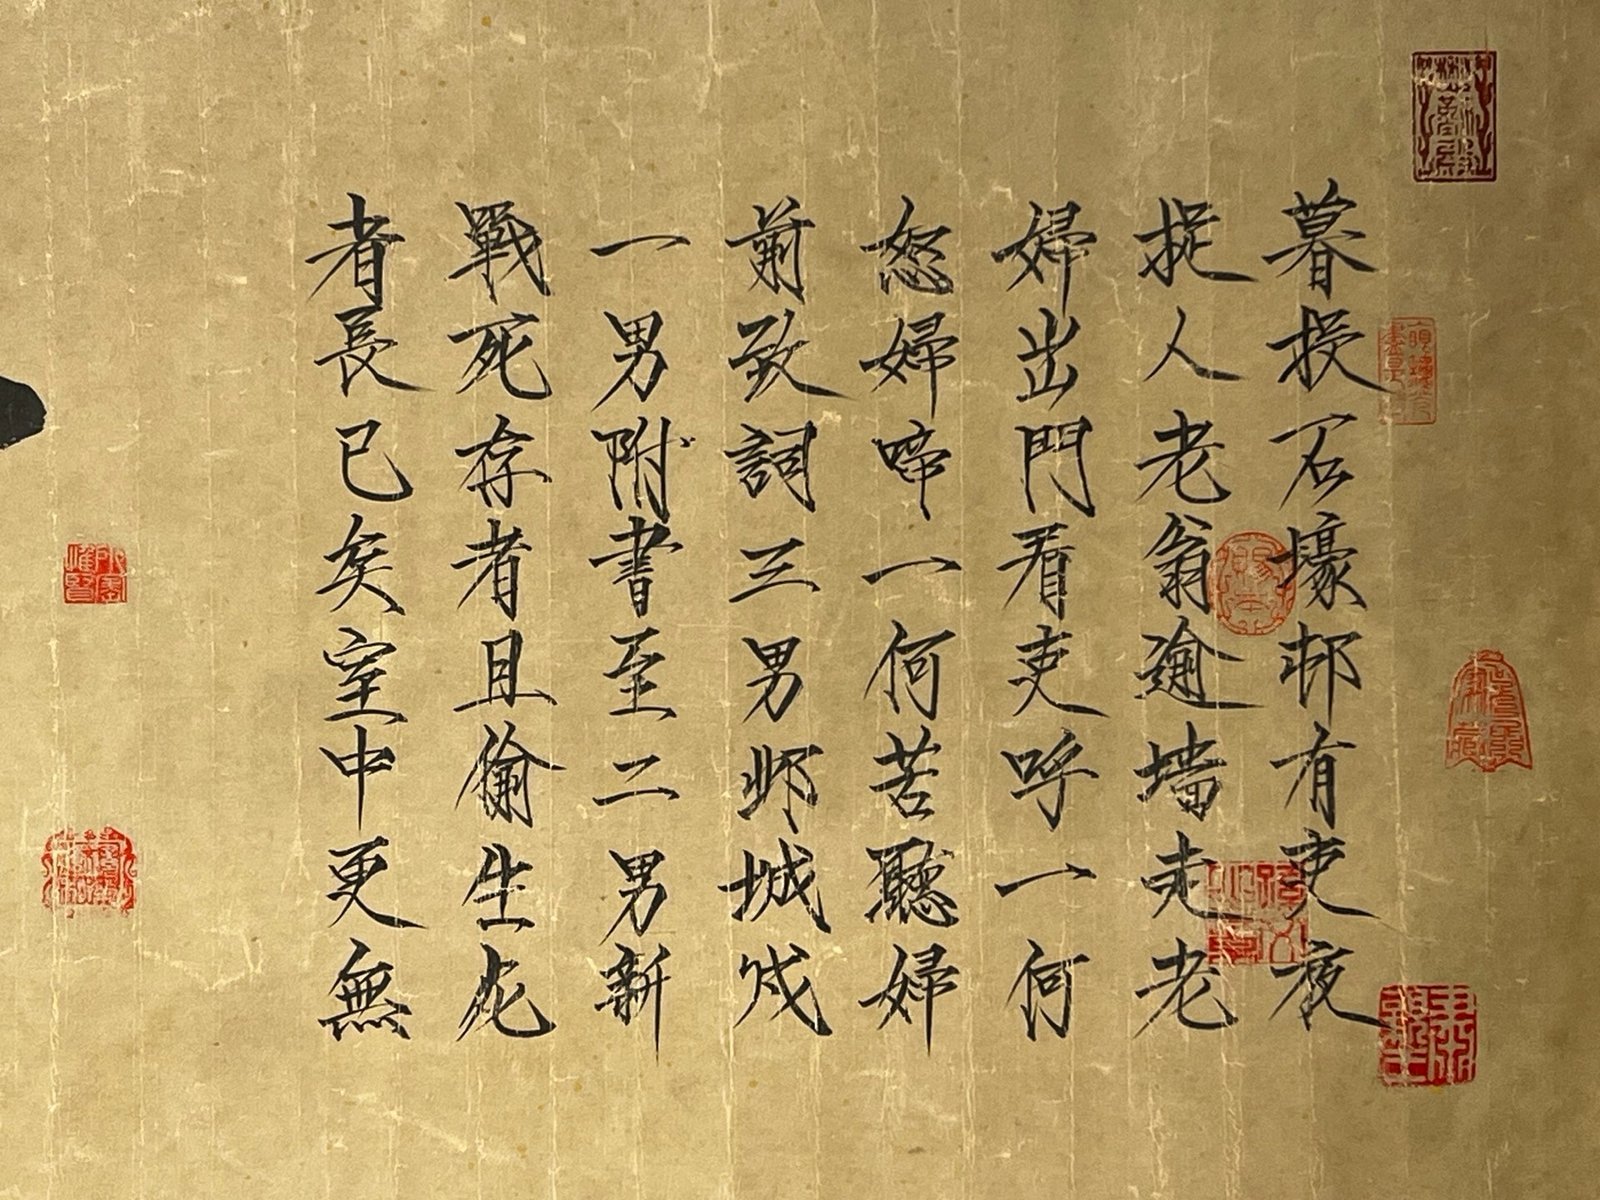 暮投石壕邨有吏夜
捉人老翁逾墙走老
婦出門看吏呼一何
怒婦啼一何苦聽婦
前致詞三男邺城戍
一男附書至二男新
戰死存者且偷生死
者長已矣室中更無